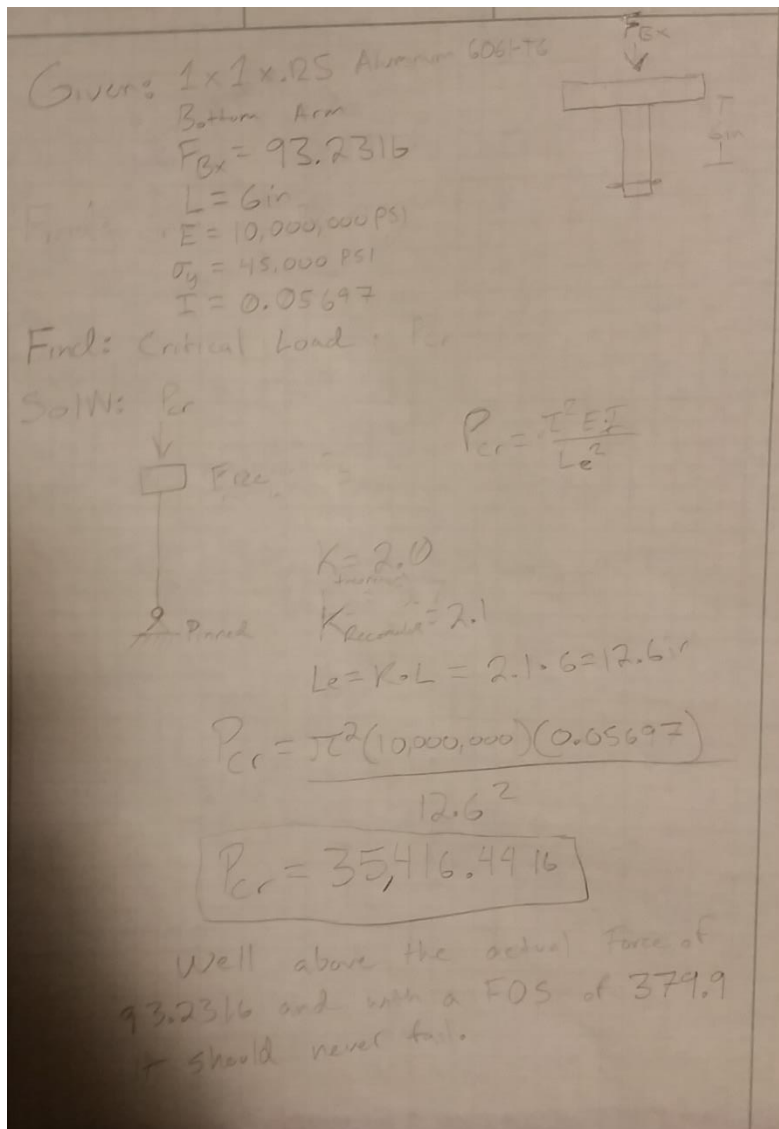 F_Bx
Given: 1x1x.125 Aluminum 6061-T6
Bottom Arm
F_Bx = 93.23 lb
6in
L = 6in
E = 10,000,000 PSI
σ_y = 45,000 PSI
I = 0.05697
Find: Critical Load Pcr
Soln: Pcr
P_cr = π² E·I / Le²
Free
K = 2.0
Pinned
K = 2.1
Le = K·L = 2.1·6 = 12.6in
P_cr = π²(10,000,000)(0.05697)
12.6²
P_cr = 35,416.44 lb
Well above the actual Force of
93.23lb and with a FOS of 379.9
it should never fail.